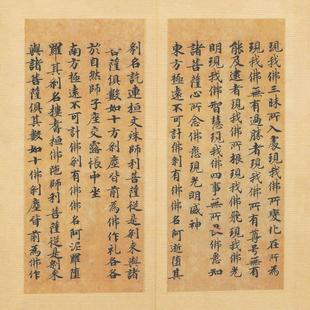 現我佛三昧所入處現我佛變化在所為
現我佛無有過勝者現我佛所有尊号無有
能及逮者現我佛所根現我佛飛現我佛光
明現我佛智慧現我佛四事無所畏佛悉知
諸菩薩心所念佛悉現光明威神
東方極遠不可計佛剎有佛佛名阿逝墮其
剎名訖連桓文殊師利菩薩從是剎來與諸
菩薩俱數如十方剎塵皆前為佛作礼各各
於自然師子座交露帳中坐
南方極遠不可計佛剎有佛佛名阿泥羅墮
羅其剎名樓耆桓佛陁師利菩薩從是剎來
與諸菩薩俱其數如十佛剎塵皆前為佛作